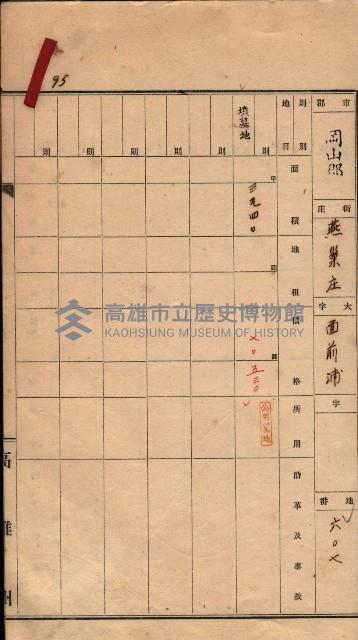 95
市郡
岡山郡
街庄
燕巢庄
大字
面前浦
字
地番
六〇七
則別 地目
面積
地租
價格
所用
沿革及事故
墳墓地
則 則 則 則 則 則
甲
三九四〇
圓
五三〇
公用墓地
高雄州
高雄市立歷史博物館
KAOHSIUNG MUSEUM OF HISTORY